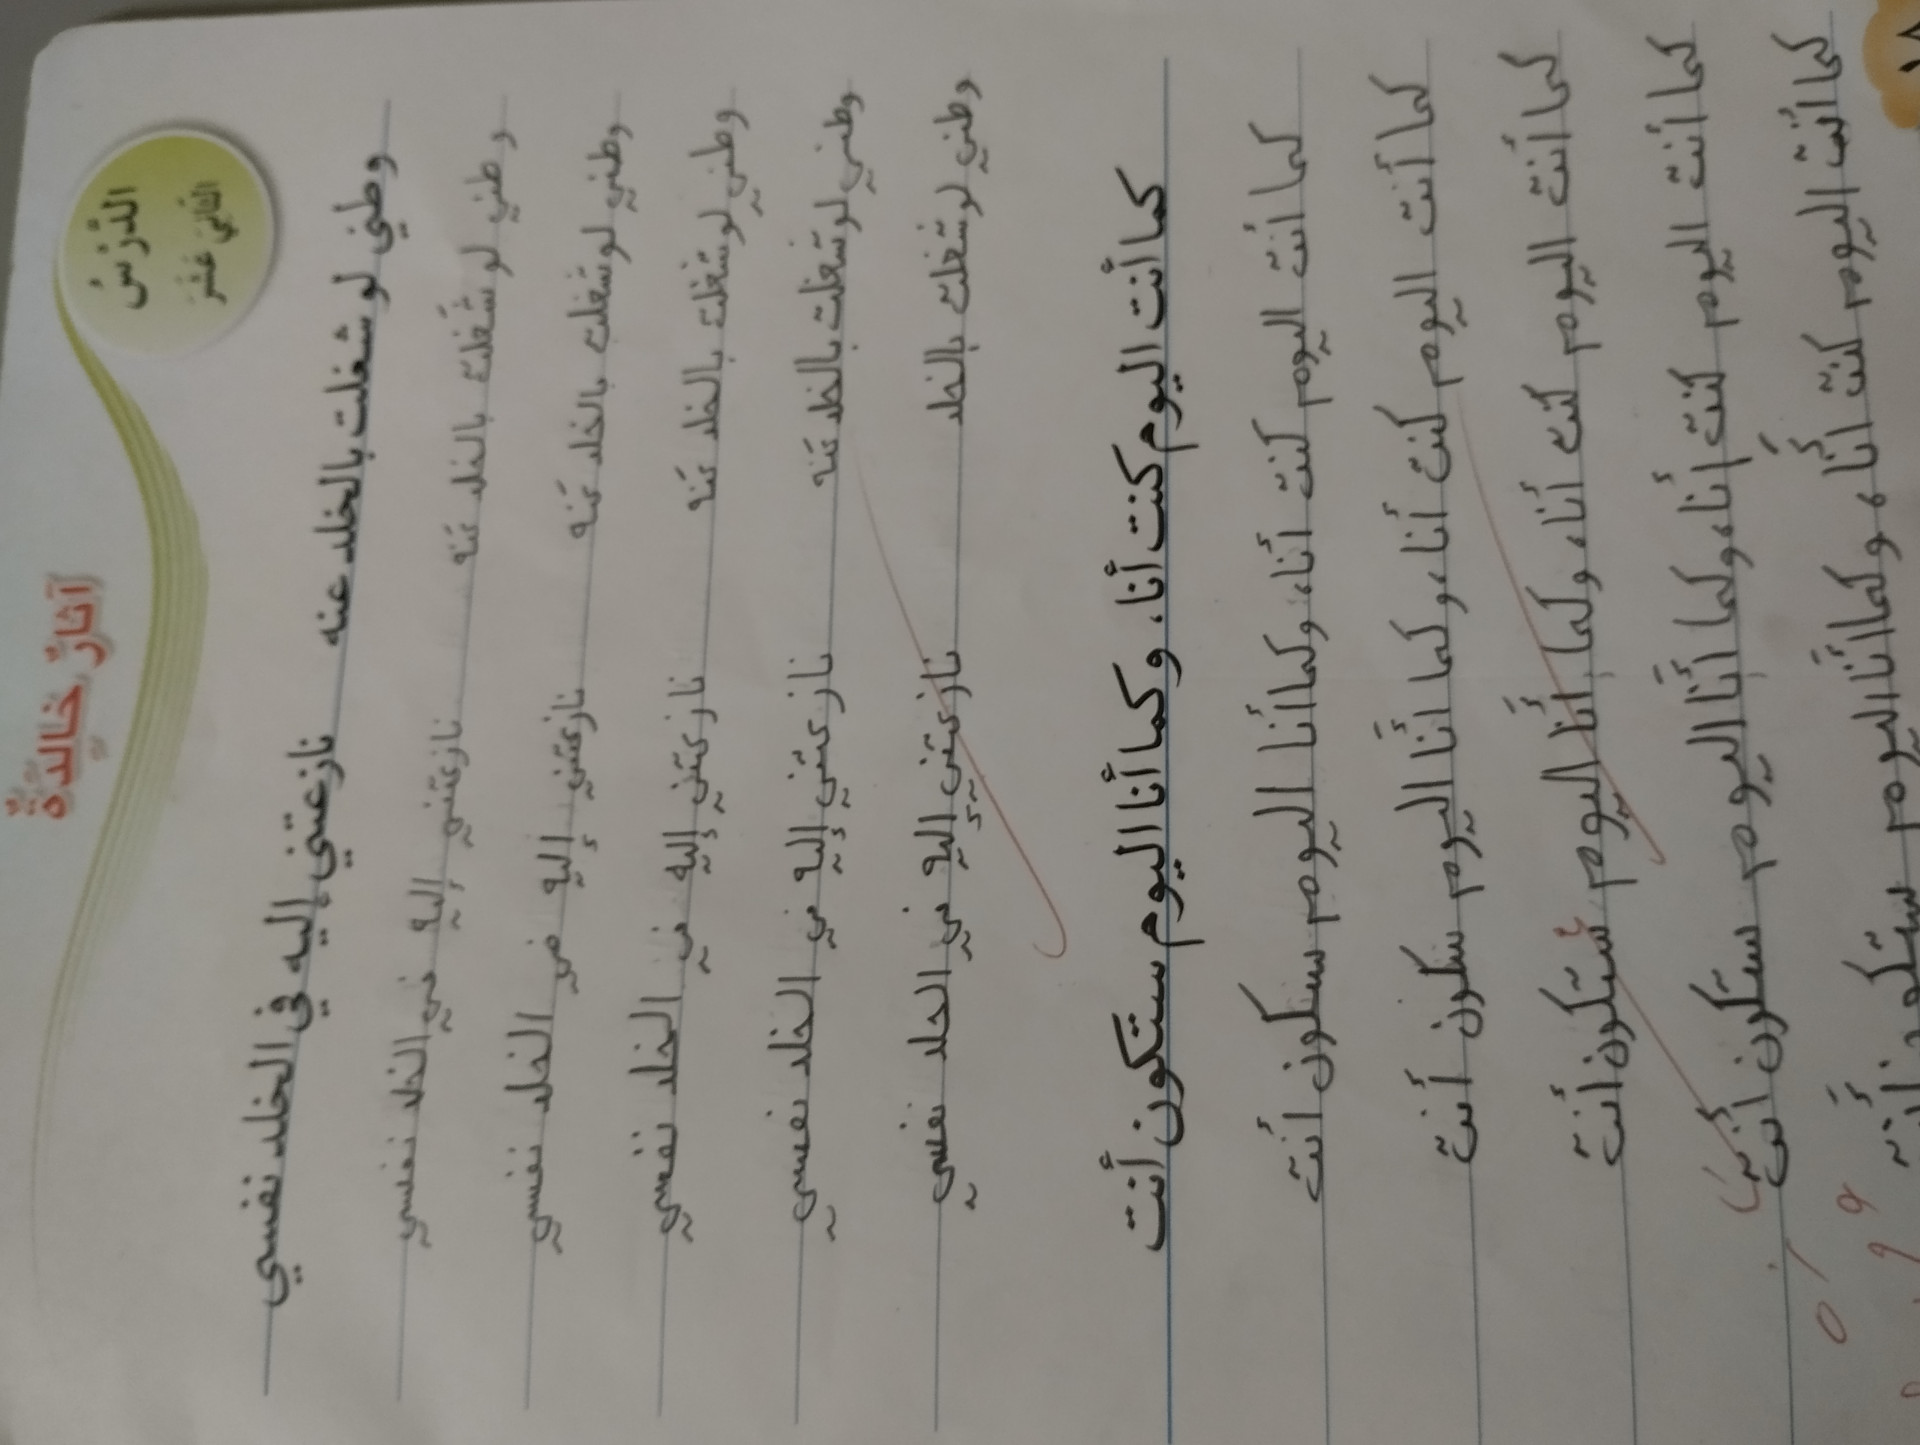 آثارٌ خالدةٌ
الدَّرْسُ
الثَّانِيَ عَشَرَ
وطني لو شغلت بالخلد عنه نازعتني إليه في الخلد نفسي
وطني لو شغلت بالخلد عنه نازعتني إليه في الخلد نفسي
وطني لو شغلت بالخلد عنه نازعتني إليه في الخلد نفسي
وطني لو شغلت بالخلد عنه نازعتني إليه في الخلد نفسي
وطني لو شغلت بالخلد عنه نازعتني إليه في الخلد نفسي
وطني لو شغلت بالخلد نازعتني إليه في الخلد نفسي
كما أنت اليوم كنت أنا، وكما أنا اليوم ستكون أنت
كما أنت اليوم كنت أنا، وكما أنا اليوم سكون أنت
كما أنت اليوم كنت أنا، وكما أنا اليوم سكون أنت
كما أنت اليوم كنت أنا، وكما أنا اليوم ستكون أنت
كما أنت اليوم كنت أنا، وكما أنا اليوم ستكون أنت
كما أنت اليوم كنت أنا، وكما أنا اليوم ستكون